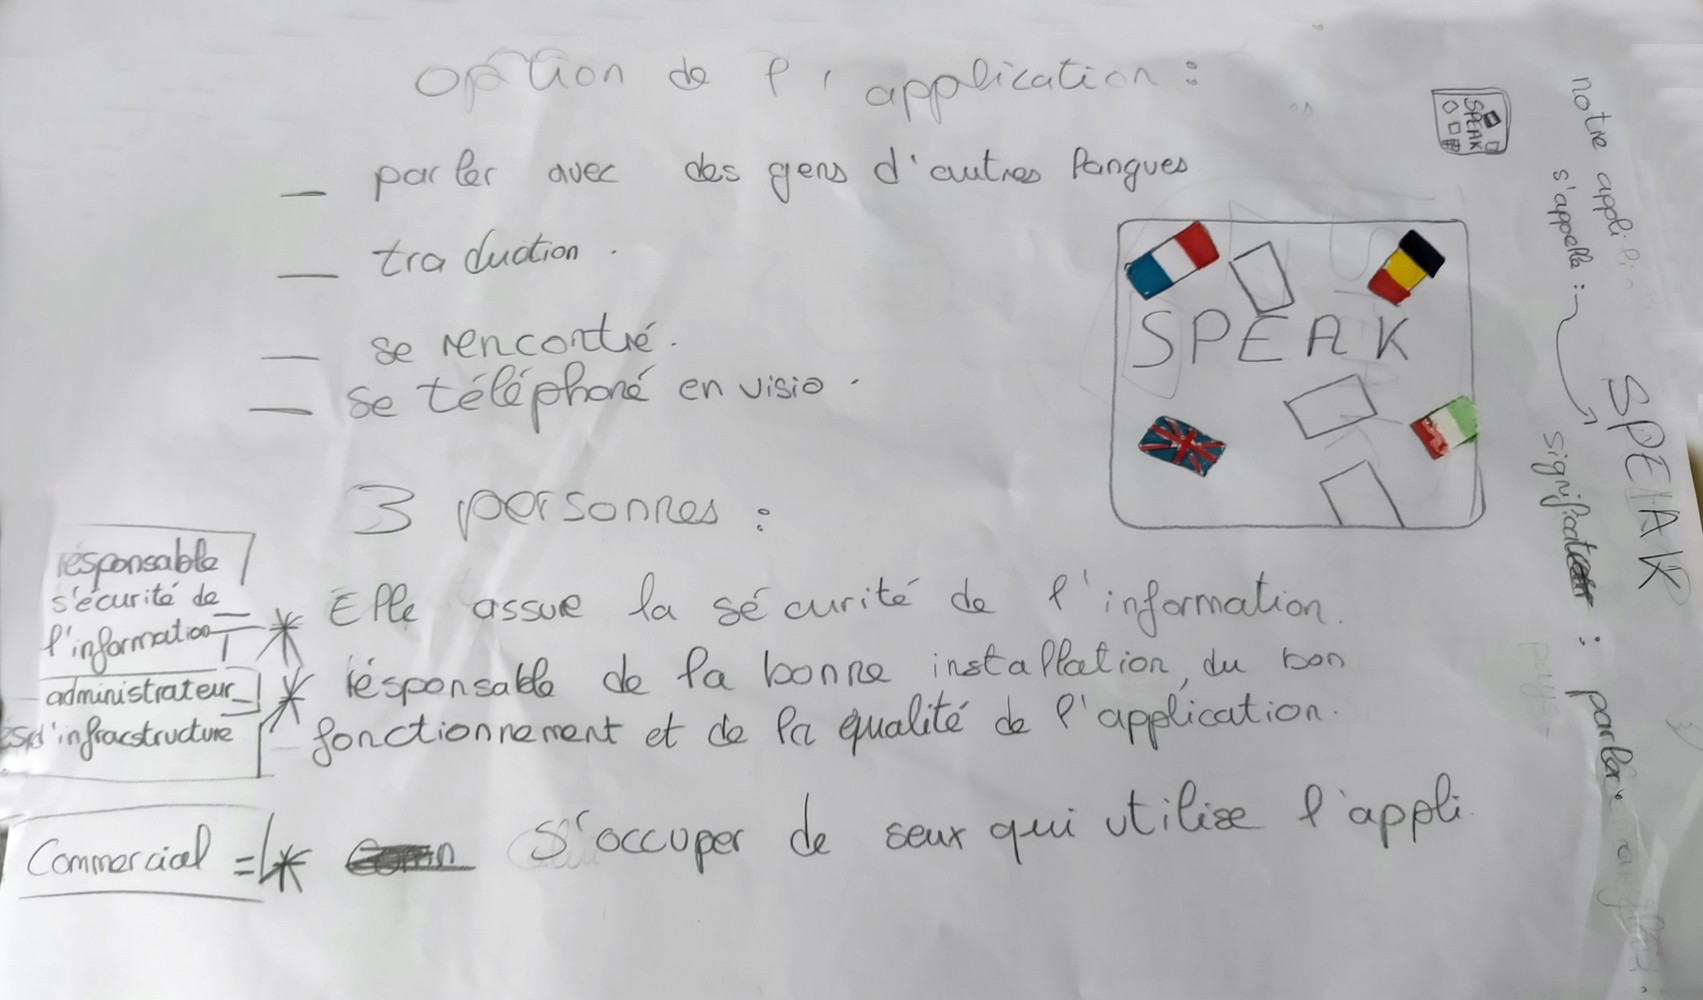 option de l'application :
— parler avec des gens d'autres langues
— traduction.
— se rencontré.
— se téléphoné en visio.
SPEAK
3 personnes :
résponsable
s'écurité de
l'information
* Elle assure la sécurité de l'information.
administrateur
d'infracstructure
* résponsable de la bonne installation, du bon
fonctionnement et de la qualité de l'application.
Commercial =
* S'occuper de seux qui utilise l'appli.
SPEAK
notre appli
s'appelle :
SPEAK
signification :
parler
pays